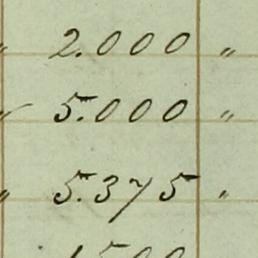 " 2.000 "
" 5.000 "
" 5.375 "